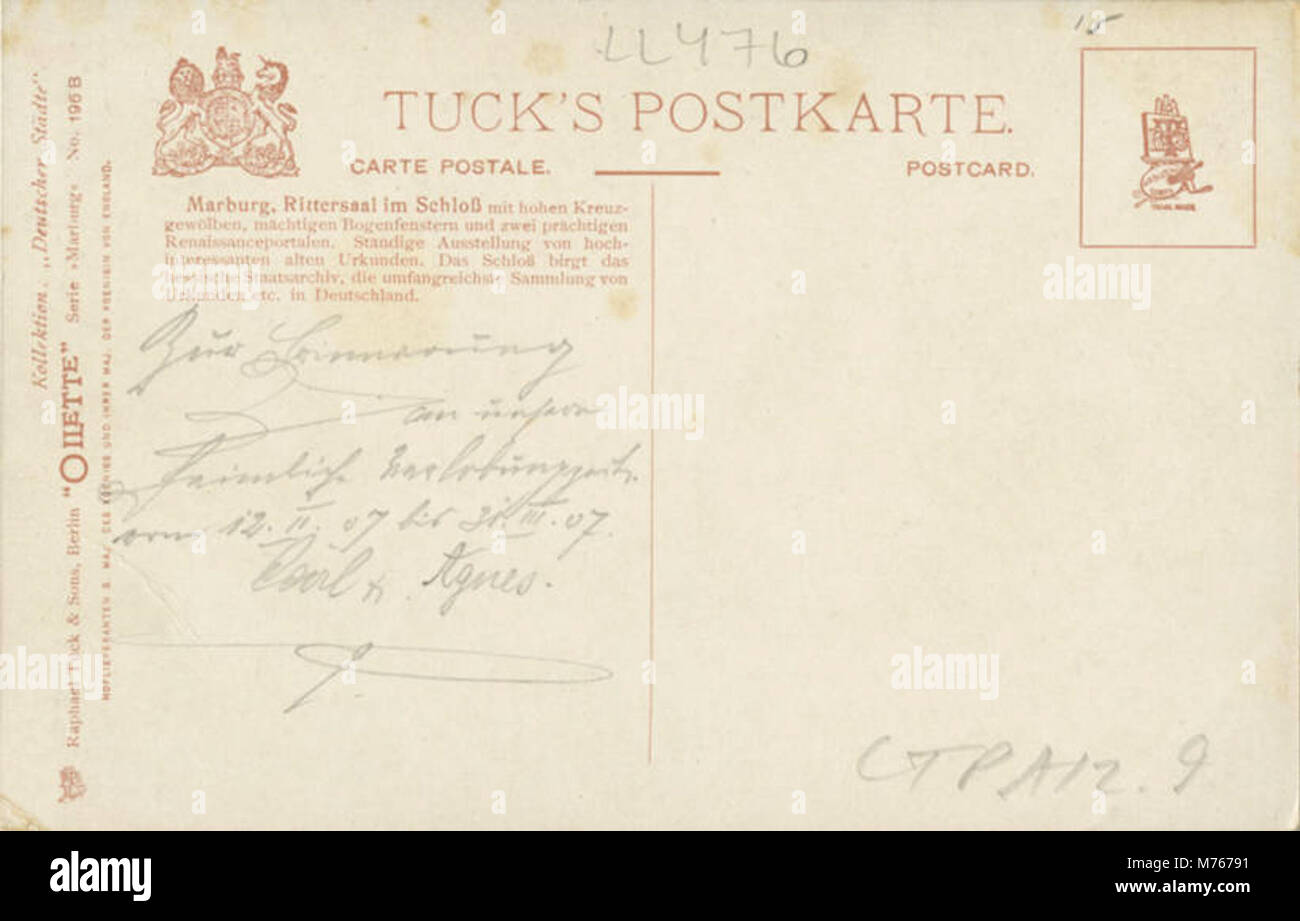 LL476
15
TUCK'S POSTKARTE.
CARTE POSTALE.
POSTCARD.
Marburg, Rittersaal im Schloß mit hohen Kreuz-
gewölben, mächtigen Bogenfenstern und zwei prächtigen
Renaissanceportalen. Ständige Ausstellung von hoch-
interessanten alten Urkunden. Das Schloß birgt das
Staatsarchiv, die umfangreichste Sammlung von
Urkunden etc. in Deutschland.
Zur Erinnerung
an unsere
heimliche Verlobungszeit.
vom 12. II. 07 bis 31. III. 07.
Carl u. Agnes.
Kollektion „Deutscher Städte"
Raphael Tuck & Sons, Berlin "OILETTE" Serie »Marburg« No. 196 B
HOFLIEFERANTEN S. MAJ. DES KOENIGS UND IHRER MAJ. DER KOENIGIN VON ENGLAND.
alamy stock photo
alamy
alamy
alamy
alamy
alamy
Image ID: M76791
www.alamy.com